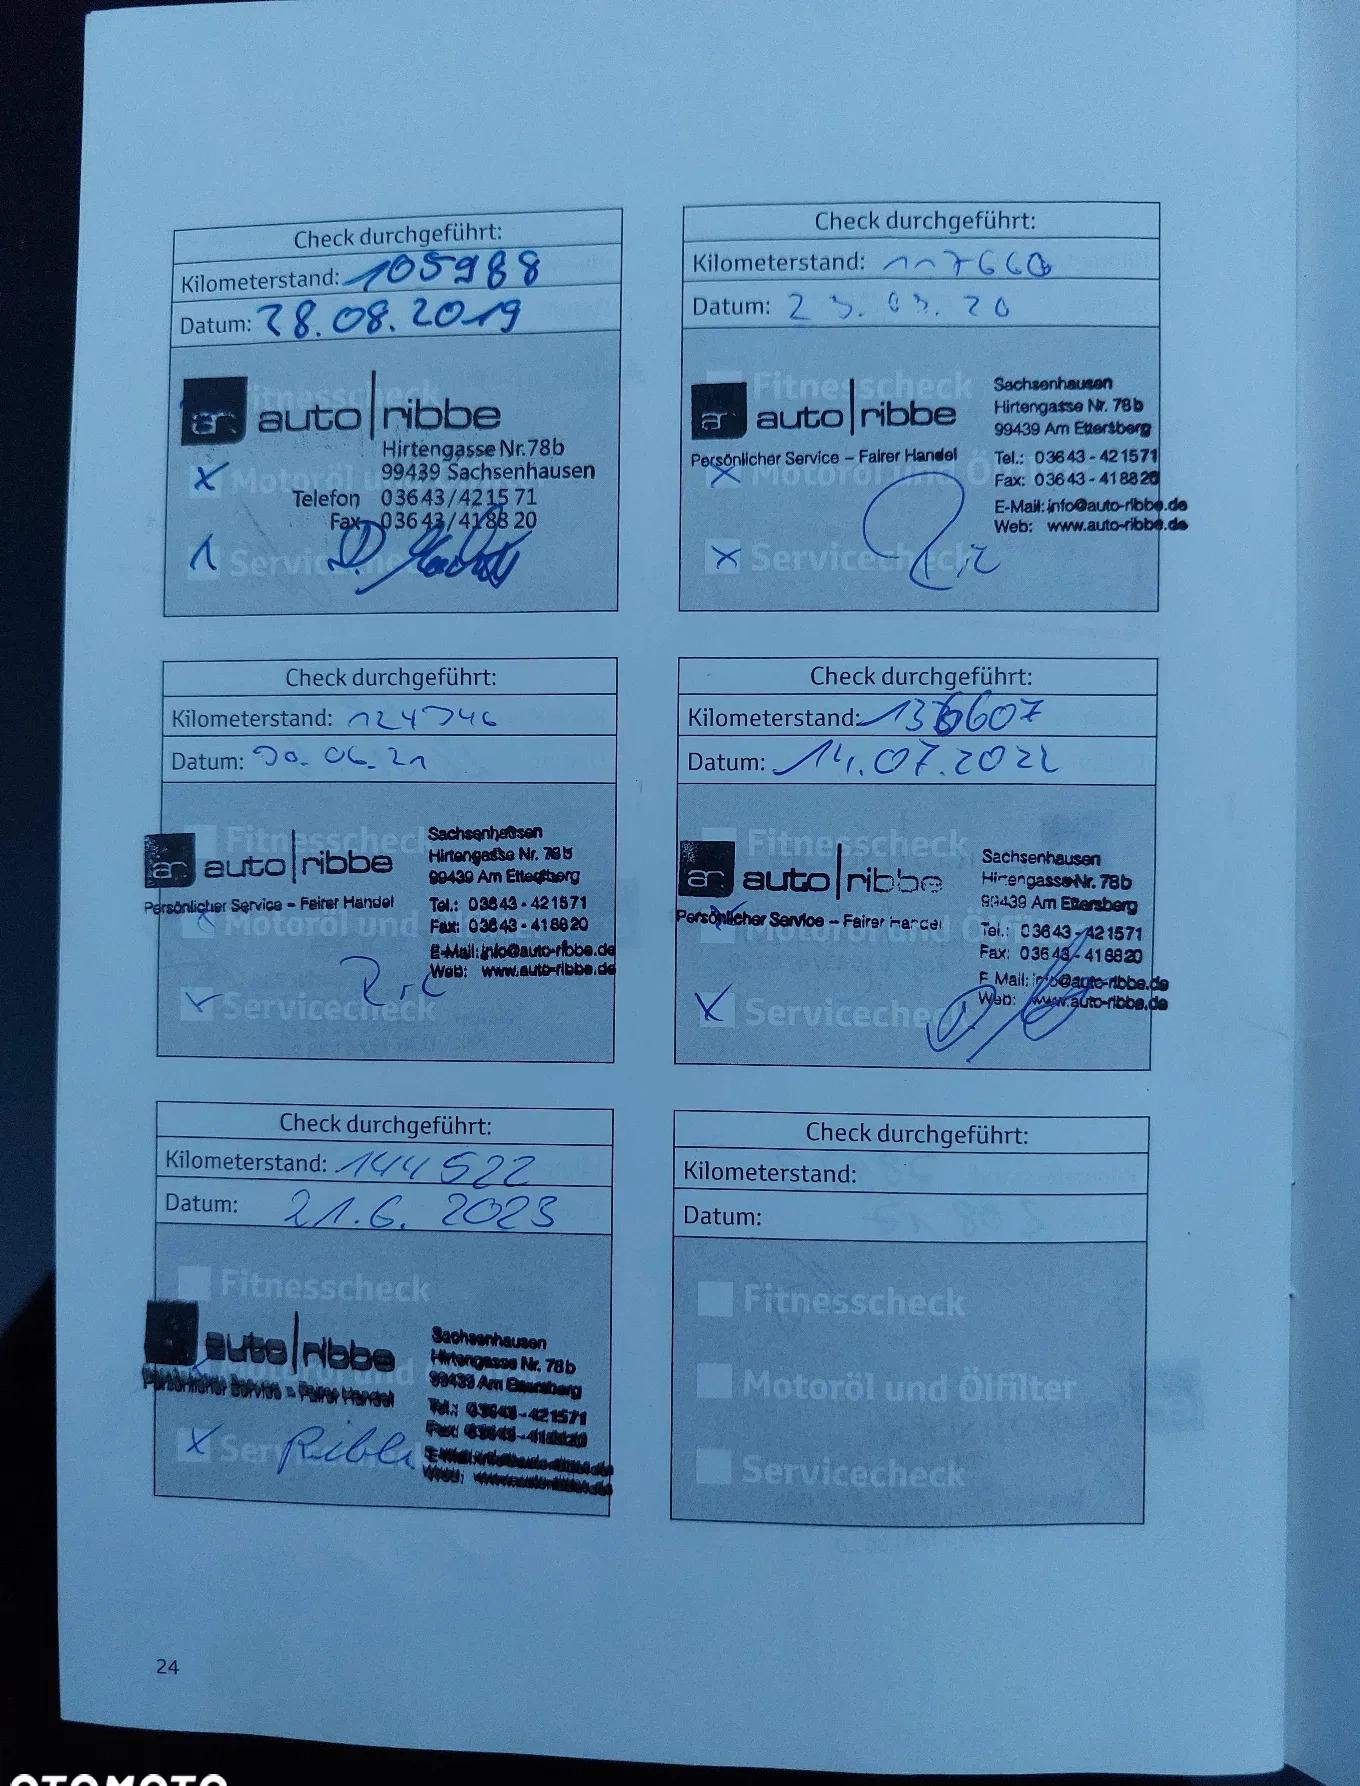 Check durchgeführt:
Kilometerstand: 105988
Datum: 28.08.2019
Fitnesscheck
ar auto|ribbe
Hirtengasse Nr.78b
99439 Sachsenhausen
x Motoröl
Telefon 03643/421571
Fax 03643/418820
Check durchgeführt:
Kilometerstand: 117660
Datum: 23.03.20
Fitnesscheck
ar auto|ribbe
Persönlicher Service – Fairer Handel
Sachsenhausen
Hirtengasse Nr. 78b
99439 Am Ettersberg
Tel.: 03643 - 421571
Fax: 03643 - 418820
E-Mail: info@auto-ribbe.de
Web: www.auto-ribbe.de
x Motoröl und Ölfilter
x Servicecheck
Check durchgeführt:
Kilometerstand: 124746
Datum: 06.21
Fitnesscheck
ar auto|ribbe
Persönlicher Service – Fairer Handel
Sachsenhausen
Hirtengasse Nr. 78b
99439 Am Ettersberg
Tel.: 03643 - 421571
Fax: 03643 - 418820
E-Mail: info@auto-ribbe.de
Web: www.auto-ribbe.de
Motoröl und
Servicecheck
Check durchgeführt:
Kilometerstand: 136607
Datum: 14.07.2022
Fitnesscheck
ar auto|ribbe
Persönlicher Service – Fairer Handel
Sachsenhausen
Hirtengasse Nr. 78b
99439 Am Ettersberg
Tel.: 03643 - 421571
Fax: 03643 - 418820
E-Mail: info@auto-ribbe.de
Web: www.auto-ribbe.de
Motoröl und Ölfilter
x Servicecheck
Check durchgeführt:
Kilometerstand: 144522
Datum: 21.6.2023
Fitnesscheck
auto|ribbe
Persönlicher Service – Fairer Handel
Sachsenhausen
Hirtengasse Nr. 78b
99439 Am Ettersberg
Tel.: 03643 - 421571
Fax: 03643 - 418820
x
Check durchgeführt:
Kilometerstand:
Datum:
Fitnesscheck
Motoröl und Ölfilter
Servicecheck
24
OTOMOTO